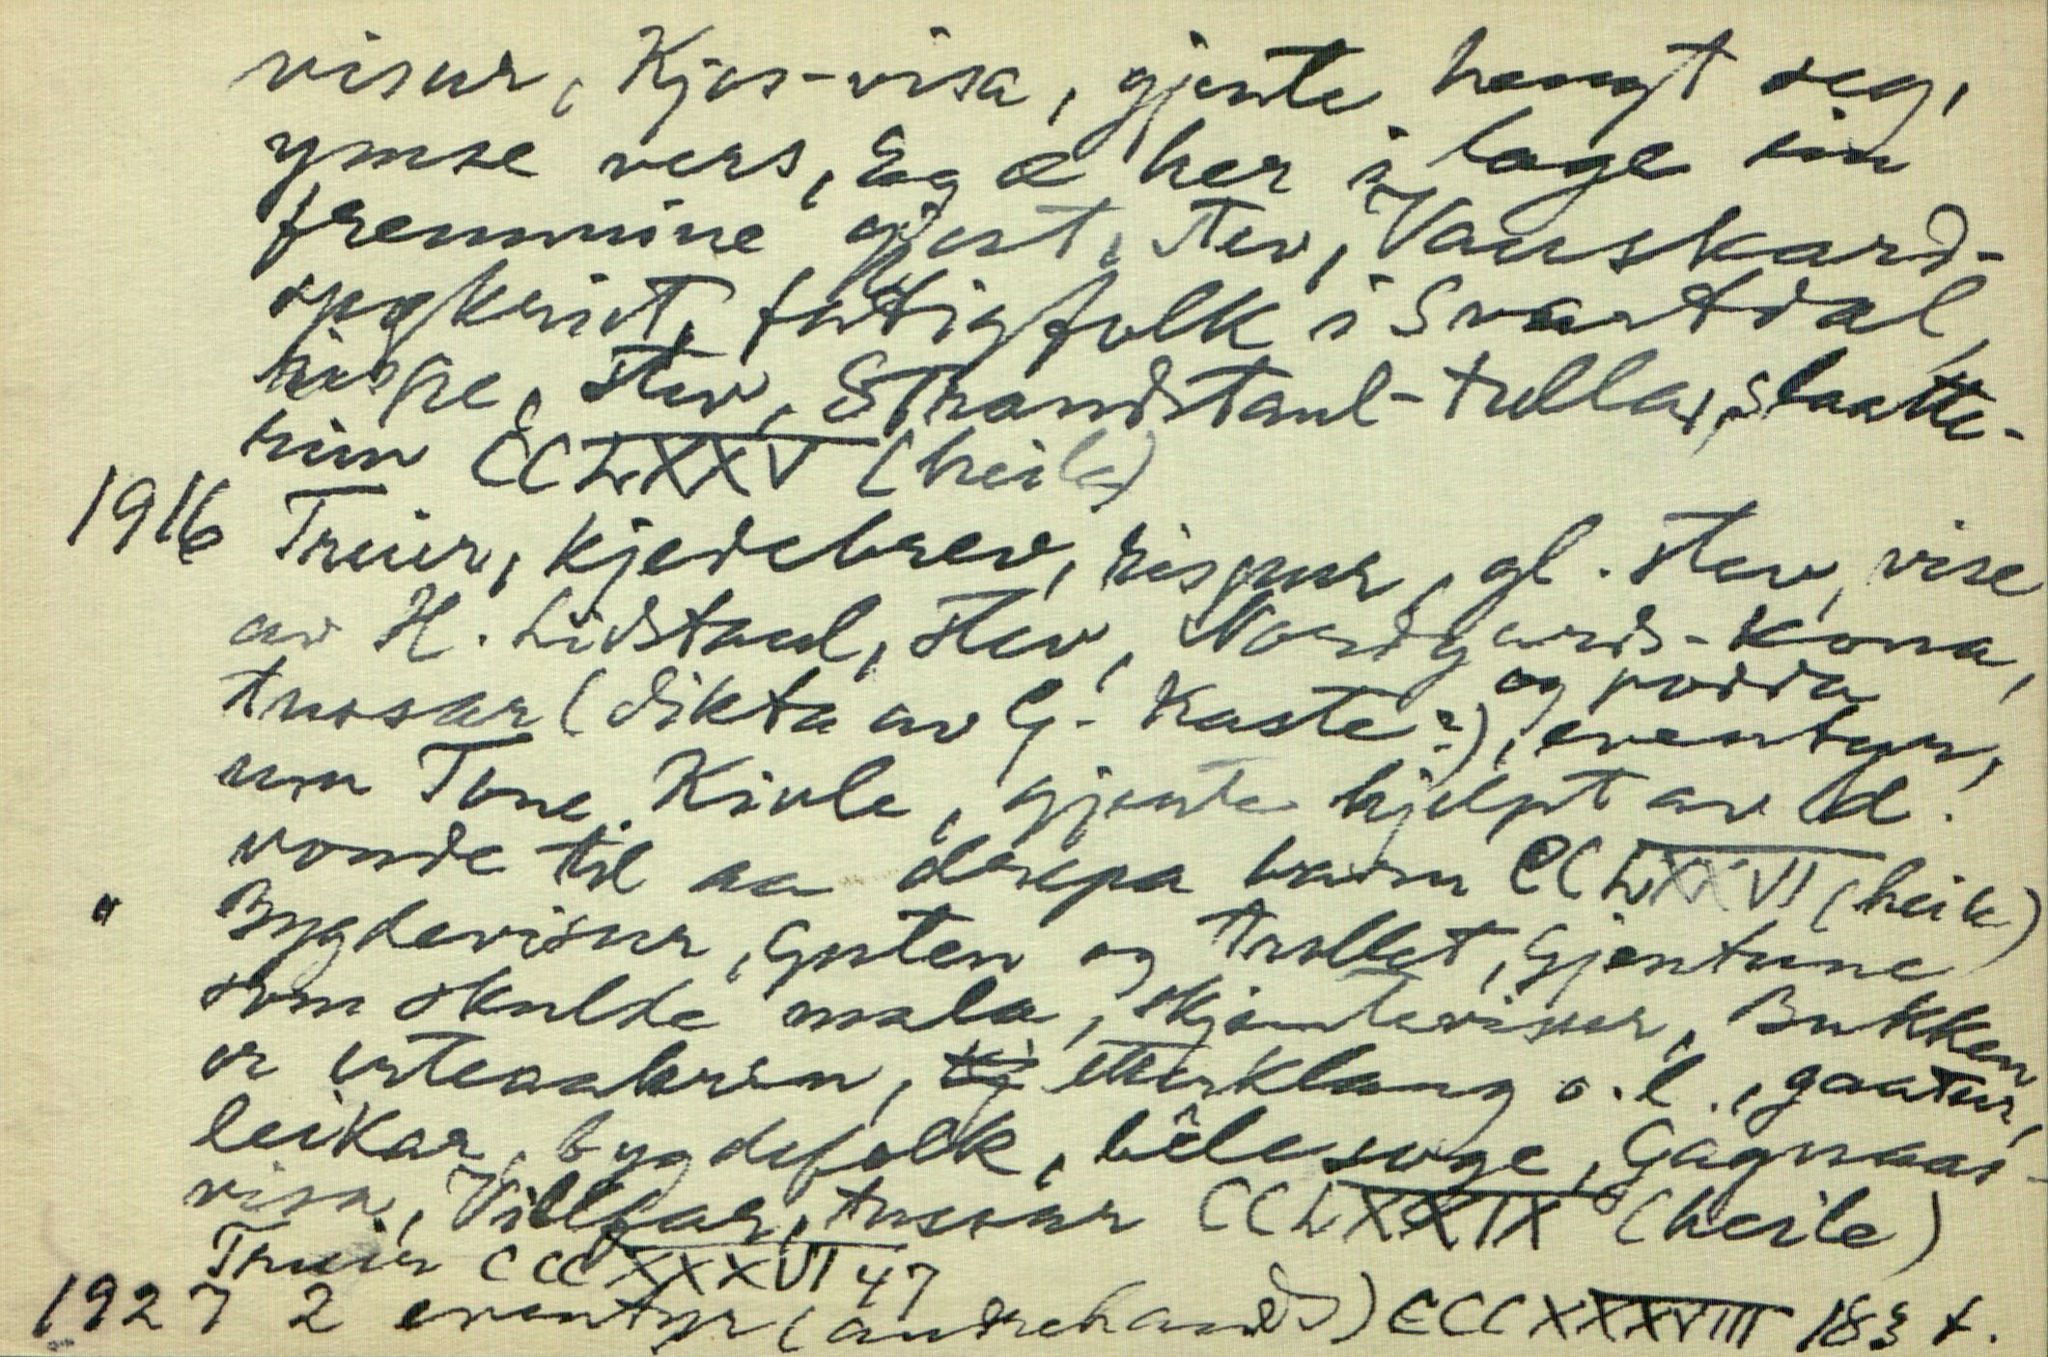 visur, Kjos-visa, gjente hengt seg,
ymse vers, Eg æ her i lage ein
fremmine gjest, stev, Vauskard-
spøkerit, fattigfolk i Svartdal,
rispe, stev, Strandstaul-tulla, slaatte-
rim CCLXXV (heile)
1916 Truer, kjedebrev, rispur, gl. stev, vise
av H. Lidstaul, stev, Nordgards-kona,
tussar (dikta av G. Kaste?), eventyr, og podda
um Tone Kivle, gjente hjelpt av d.
vonde til aa drepa barn CCLXXVI (heile)
" Bygdevisur, Guten og trollet, Gjentune
som skulde mala, skjemtevisur, Bukken
or erteaakren, etterklang o.l., gaatur,
leikar, bygdefolk, bêlesoge, Gagnaas-
visa, Villfar, tussar CCLXXIX (heile)
Truer CCCXXXVI 47
1927 2 eventyr (andrehands) CCCXXXVIII 183 f.